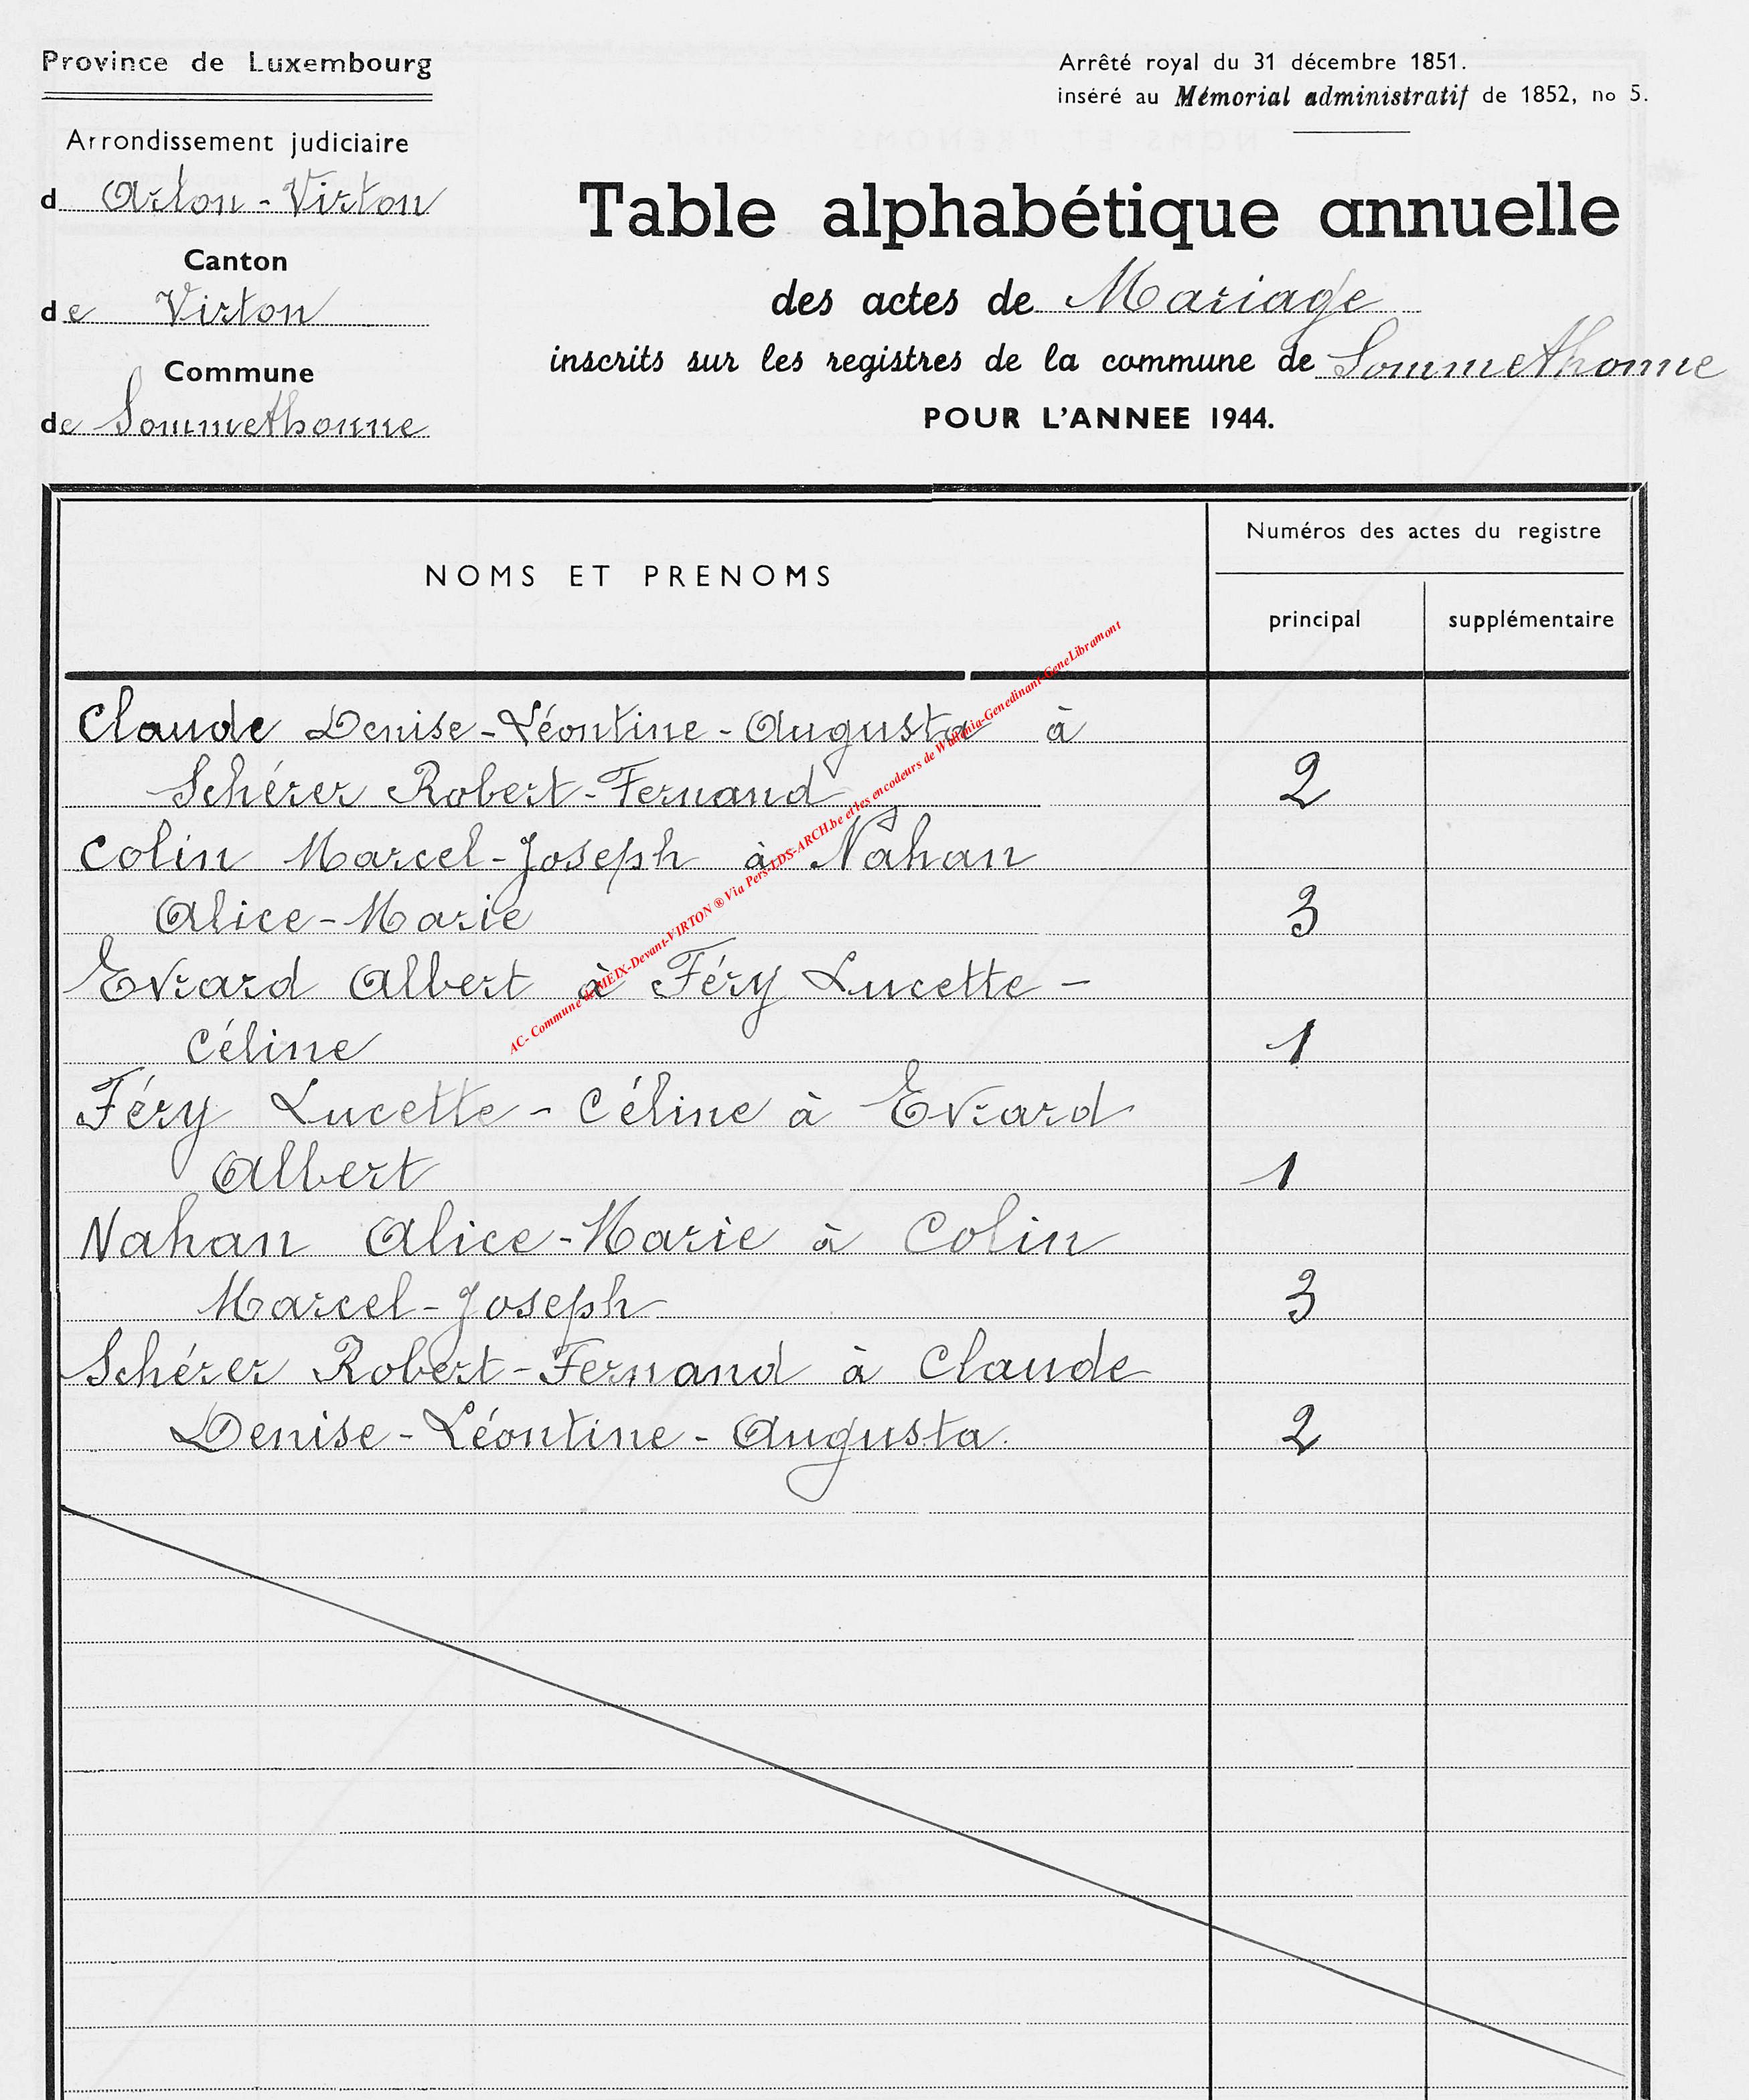 Province de Luxembourg
Arrêté royal du 31 décembre 1851.
inséré au Mémorial administratif de 1852, no 5.
Arrondissement judiciaire
d Arlon - Virton
Canton
de Virton
Commune
de Sommethonne
Table alphabétique annuelle
des actes de Mariage
inscrits sur les registres de la commune de Sommethonne
POUR L'ANNEE 1944.
NOMS ET PRENOMS
Numéros des actes du registre
principal
supplémentaire
Claude Denise-Léontine-Augusta à
Schérer Robert-Fernand 2
Colin Marcel-Joseph à Nahan
Alice-Marie 3
Evrard Albert à Féry Lucette-
Céline 1
Féry Lucette-Céline à Evrard
Albert 1
Nahan Alice-Marie à Colin
Marcel-Joseph 3
Schérer Robert-Fernand à Claude
Denise-Léontine-Augusta. 2
AC- Commune de MEIX-Devant-VIRTON ® Via Pers-LDS-ARCH.be et les encodeurs de Wallonia-Genedinant-GeneLibramont